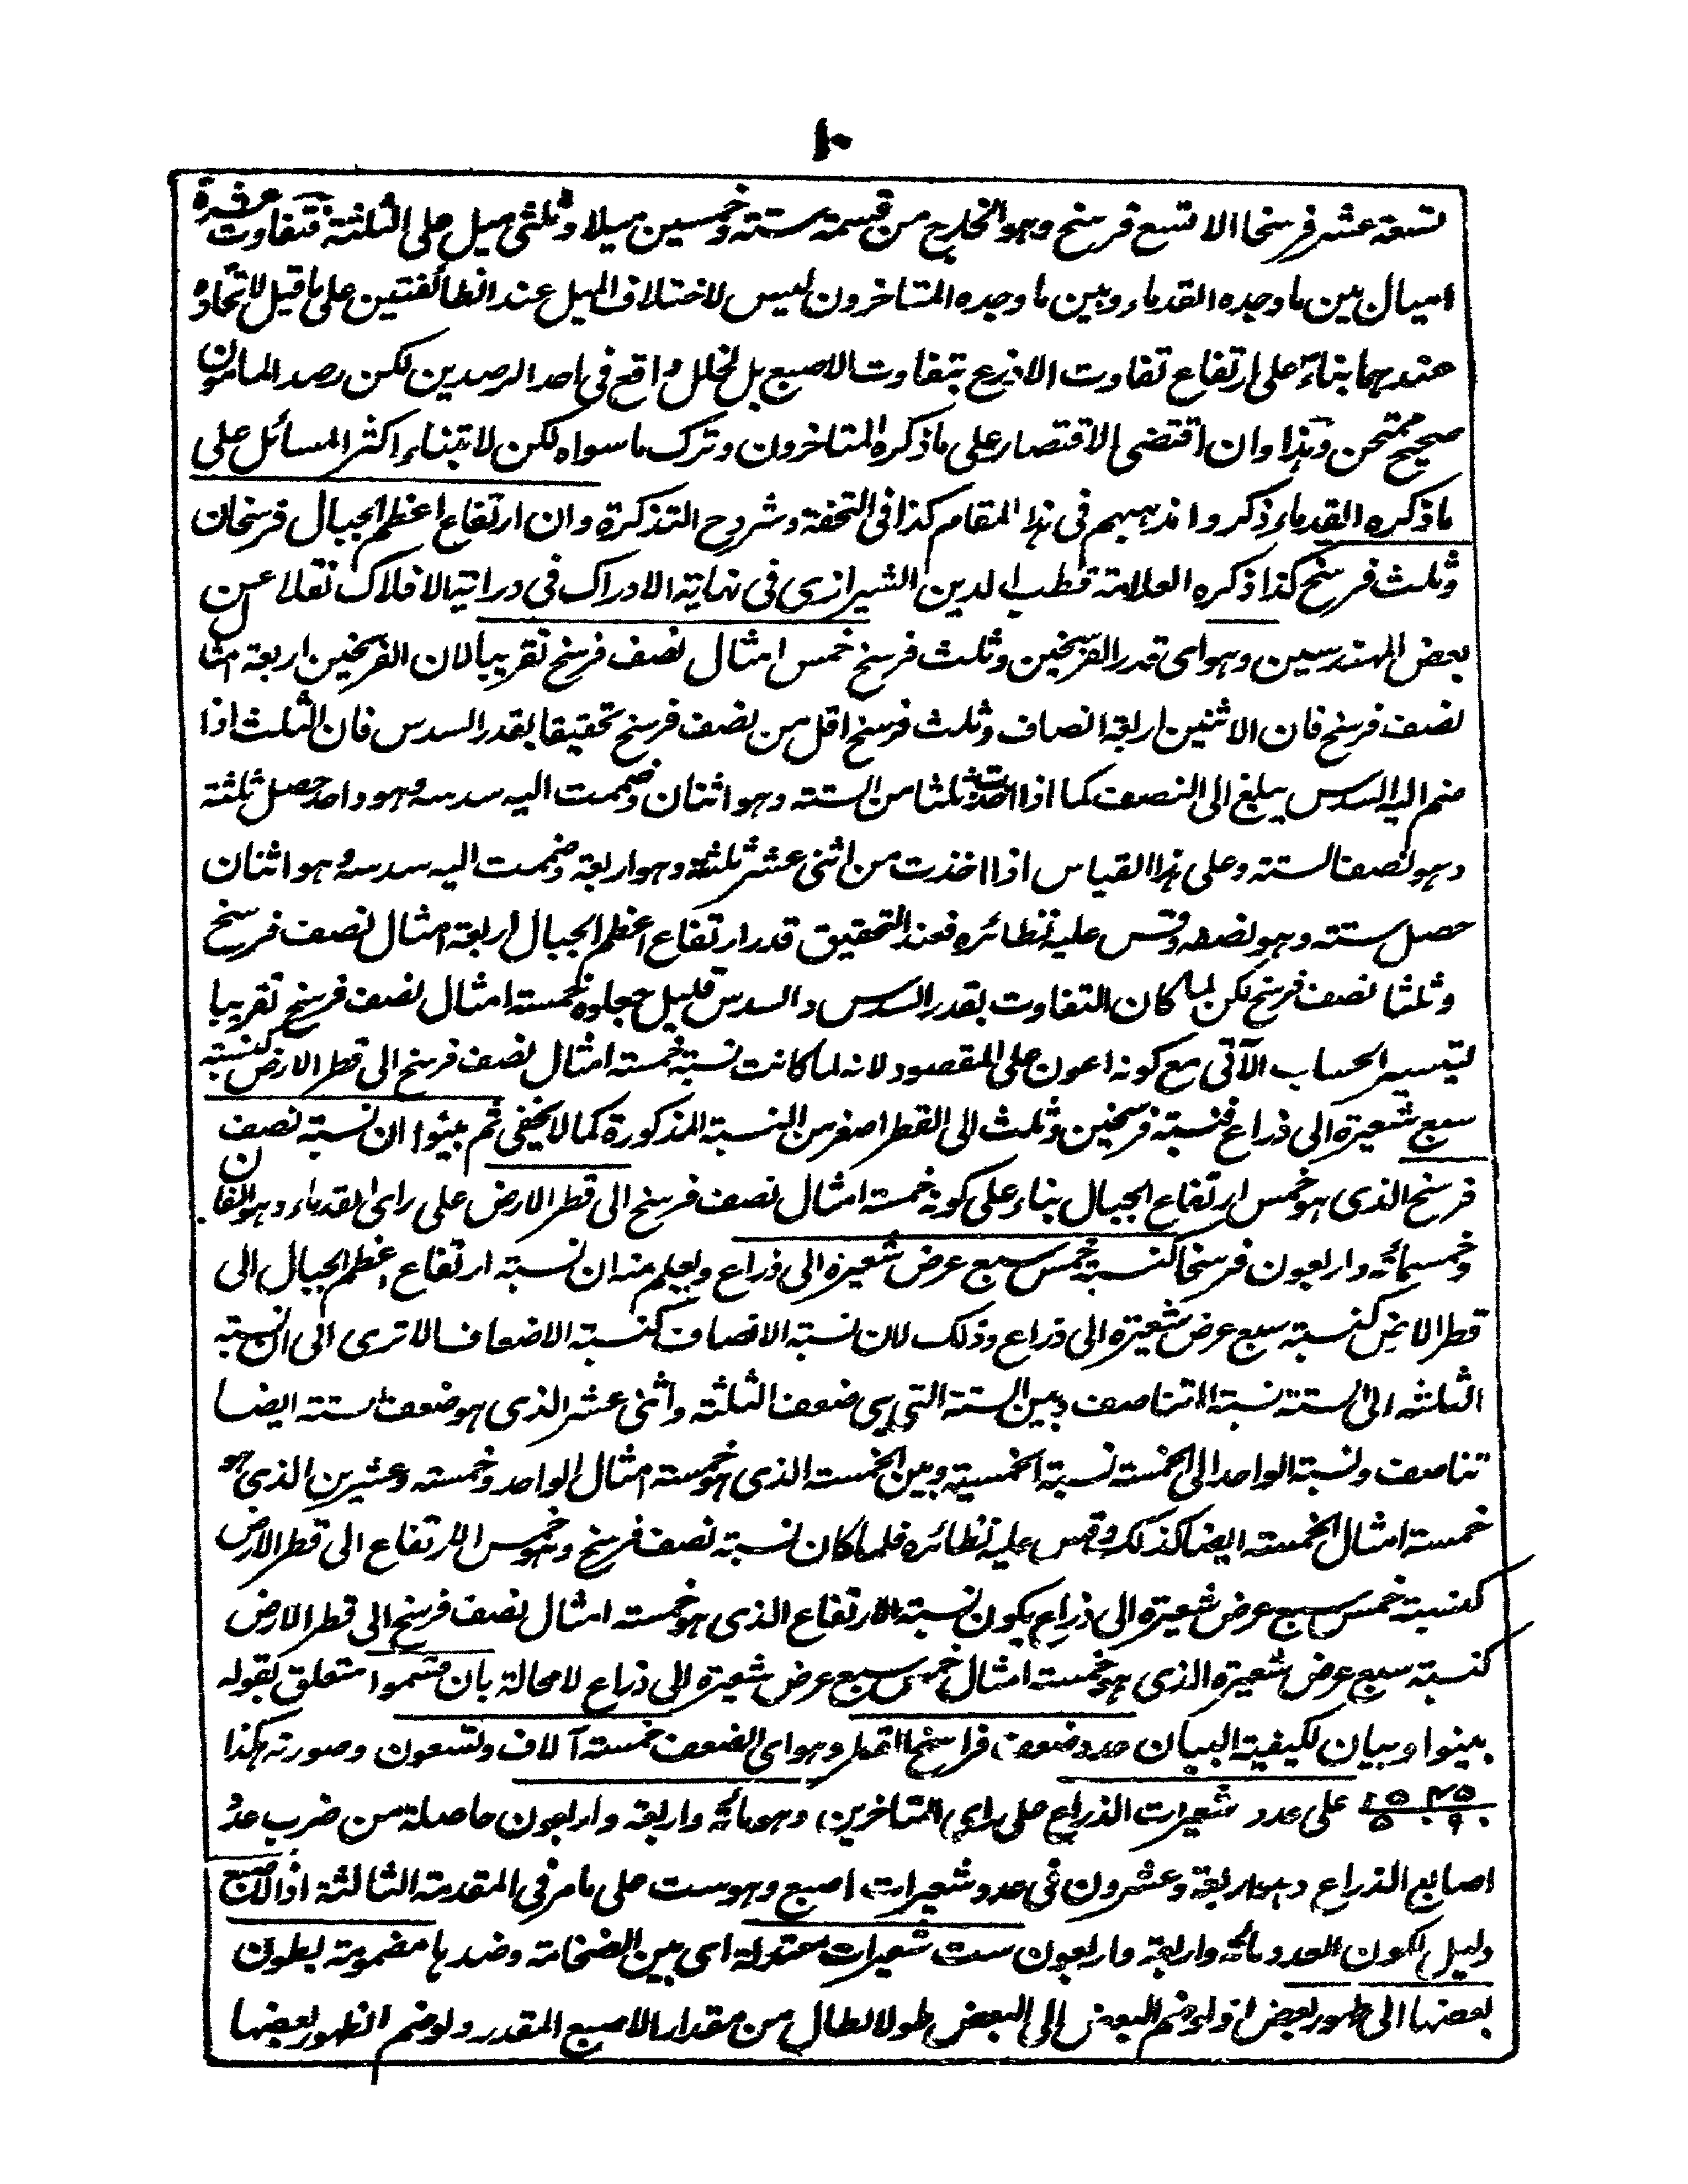 ١٠
تسعة عشر فرسخا الا تسع فرسخ وهو الخارج من قسمة ستة وخمسين ميلا وثلثى ميل على الثلثة فتفاوت عشرة
اميال بين ما وجده القدماء وبين ما وجده المتاخرون ليس لاختلاف الميل عند الطائفتين على ما قيل لاتحاده
عندهما بناء على ارتفاع تفاوت الاذرع بتفاوت الاصبع بل لخلل واقع فى احد الرصدين لكن رصد المامون
صحيح ممتحن وهذا وان اقتضى الاقتصار على ما ذكره المتاخرون وترك ما سواه لكن لابتناء اكثر المسائل على
ما ذكره القدماء ذكروا مذهبهم فى هذا المقام كذا فى التحفة وشروح التذكرة وان ارتفاع اعظم الجبال فرسخان
وثلث فرسخ كذا ذكره العلامة قطب الدين الشيرازى فى نهاية الادراك فى دراية الافلاك نقلا عن
بعض المهندسين وهو اى قدر الفرسخين وثلث فرسخ خمس امثال نصف فرسخ تقريبا لان الفرسخين اربعة امثال
نصف فرسخ فان الاثنين اربعة انصاف وثلث فرسخ اقل من نصف فرسخ تحقيقا بقدر السدس فان الثلث اذا
ضم اليه السدس يبلغ الى النصف كما اذا اخذت ثلثا من الستة وهو اثنان وضممت اليه سدسه وهو واحد حصل ثلثة
وهو نصف الستة وعلى هذا القياس اذا اخذت من اثنى عشر ثلثه وهو اربعة وضممت اليه سدسه وهو اثنان
حصل ستة وهو نصفه وقس عليه نظائره فعند التحقيق قدر ارتفاع اعظم الجبال اربعة امثال نصف فرسخ
وثلثا نصف فرسخ لكن لما كان التفاوت بقدر السدس والسدس قليل جعلوه خمسة امثال نصف فرسخ تقريبا
لتيسير الحساب الآتى مع كونه اعون على المقصود لانه لما كانت نسبة خمسة امثال نصف فرسخ الى قطر الارض كنسبة
سبع شعيرة الى ذراع فنسبة فرسخين وثلث الى القطر اصغر من النسبة المذكورة كما لا يخفى ثم بينوا ان نسبة نصف
فرسخ الذى هو خمس ارتفاع الجبال بناء على كونه خمسة امثال نصف فرسخ الى قطر الارض على راى القدماء وهو الفان
وخمسمائة واربعون فرسخا كنسبة خمس سبع عرض شعيرة الى ذراع ويعلم منه ان نسبة ارتفاع اعظم الجبال الى
قطر الارض كنسبة سبع عرض شعيرة الى ذراع وذلك لان نسبة الانصاف كنسبة الاضعاف الا ترى الى ان نسبة
الثلثة الى الستة نسبة التناصف وبين الستة التى هى ضعف الثلثة واثنى عشر الذى هو ضعف الستة ايضا
تناصف ونسبة الواحد الى الخمسة نسبة الخمسية وبين الخمسة الذى هو خمسة امثال الواحد وخمسة وعشرين الذى هو
خمسة امثال الخمسة ايضا كذلك وقس عليه نظائره فلما كان نسبة نصف فرسخ وهو خمس الارتفاع الى قطر الارض
كنسبة خمس سبع عرض شعيرة الى ذراع يكون نسبة الارتفاع الذى هو خمسة امثال نصف فرسخ الى قطر الارض
كنسبة سبع عرض شعيرة الذى هو خمسة امثال خمس سبع عرض شعيرة الى ذراع لا محالة بان قسموا متعلق بقوله
بينوا وبيان لكيفية البيان عدد ضعف فراسخ القطر وهو اى الضعف خمسة آلاف وتسعون وصورته هكذا
على عدد شعيرات الذراع على راى المتاخرين وهو مائة واربعة واربعون حاصلة من ضرب عدد
اصابع الذراع وهو اربعة وعشرون فى عدد شعيرات اصبع وهو ست على ما مر فى المقدمة الثالثة اذ الاصبع
دليل لكون العدد مائة واربعة واربعون ست شعيرات معتدلة اى بين الضخامة وضدها مضمومة بطون
بعضها الى ظهور بعض اذ لو ضم البعض الى البعض طولا لطال من مقدار الاصبع المقدر ولو ضم الظهور بعضها